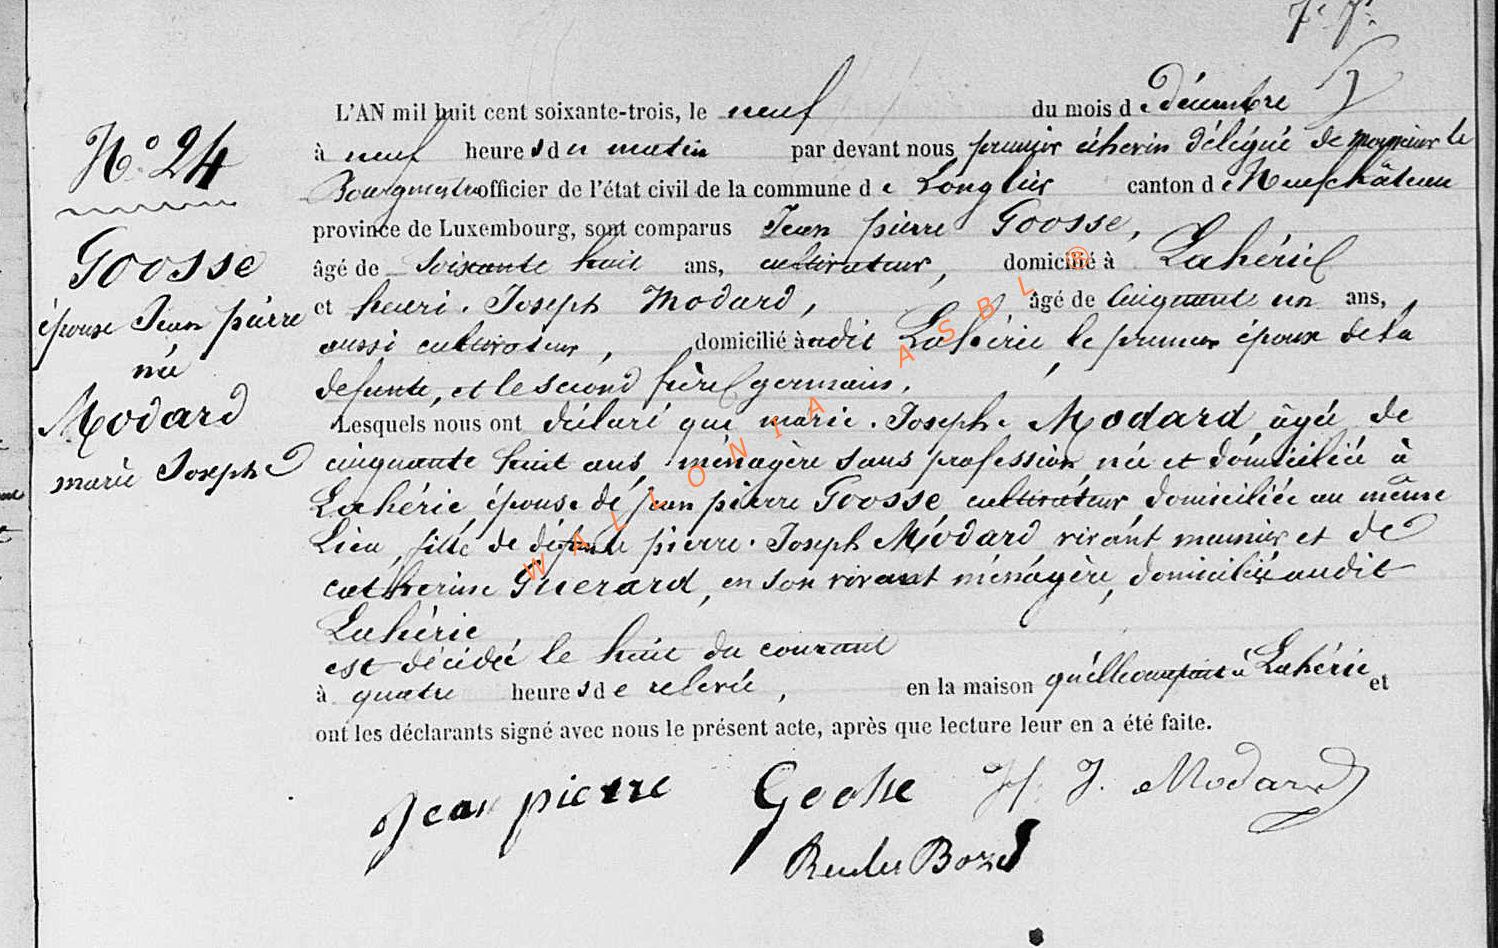 L'AN mil huit cent soixante-trois, le neuf du mois de décembre
N° 24
à neuf heures du matin par devant nous premier échevin délégué de monsieur le
Bourgmestre officier de l'état civil de la commune de Longlier canton de Neufchâteau
province de Luxembourg, sont comparus Jean pierre Goosse,
Goosse
âgé de soixante huit ans, cultivateur, domicilié à Lahérie
épouse Jean pierre
et henri. Joseph Modard, âgé de Cinquante un ans,
née
aussi cultivateur, domicilié à audit Lahérie le premier époux de la
défunte, et le second frère germain.
Modard
Lesquels nous ont déclaré que marie. Joseph. Modard âgée de
marie Joseph
cinquante huit ans ménagère sans profession née et domiciliée à
Lahérie épouse de jean pierre Goosse cultivateur domiciliée au même
Lieu, fille de défunt pierre. Joseph Modard vivant meunier et de
catherine Guerard, en son vivant ménagère, domiciliée audit
Lahérie
est décédée le huit du courant
à quatre heures de relevée, en la maison qu'elle occupait à Lahérie et
ont les déclarants signé avec nous le présent acte, après que lecture leur en a été faite.
Jean pierre Goosse H. J. Modard
WALLONIA ASBL ®